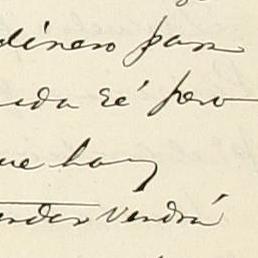 dinero para
ada sé pero
que hay
ender vendrá